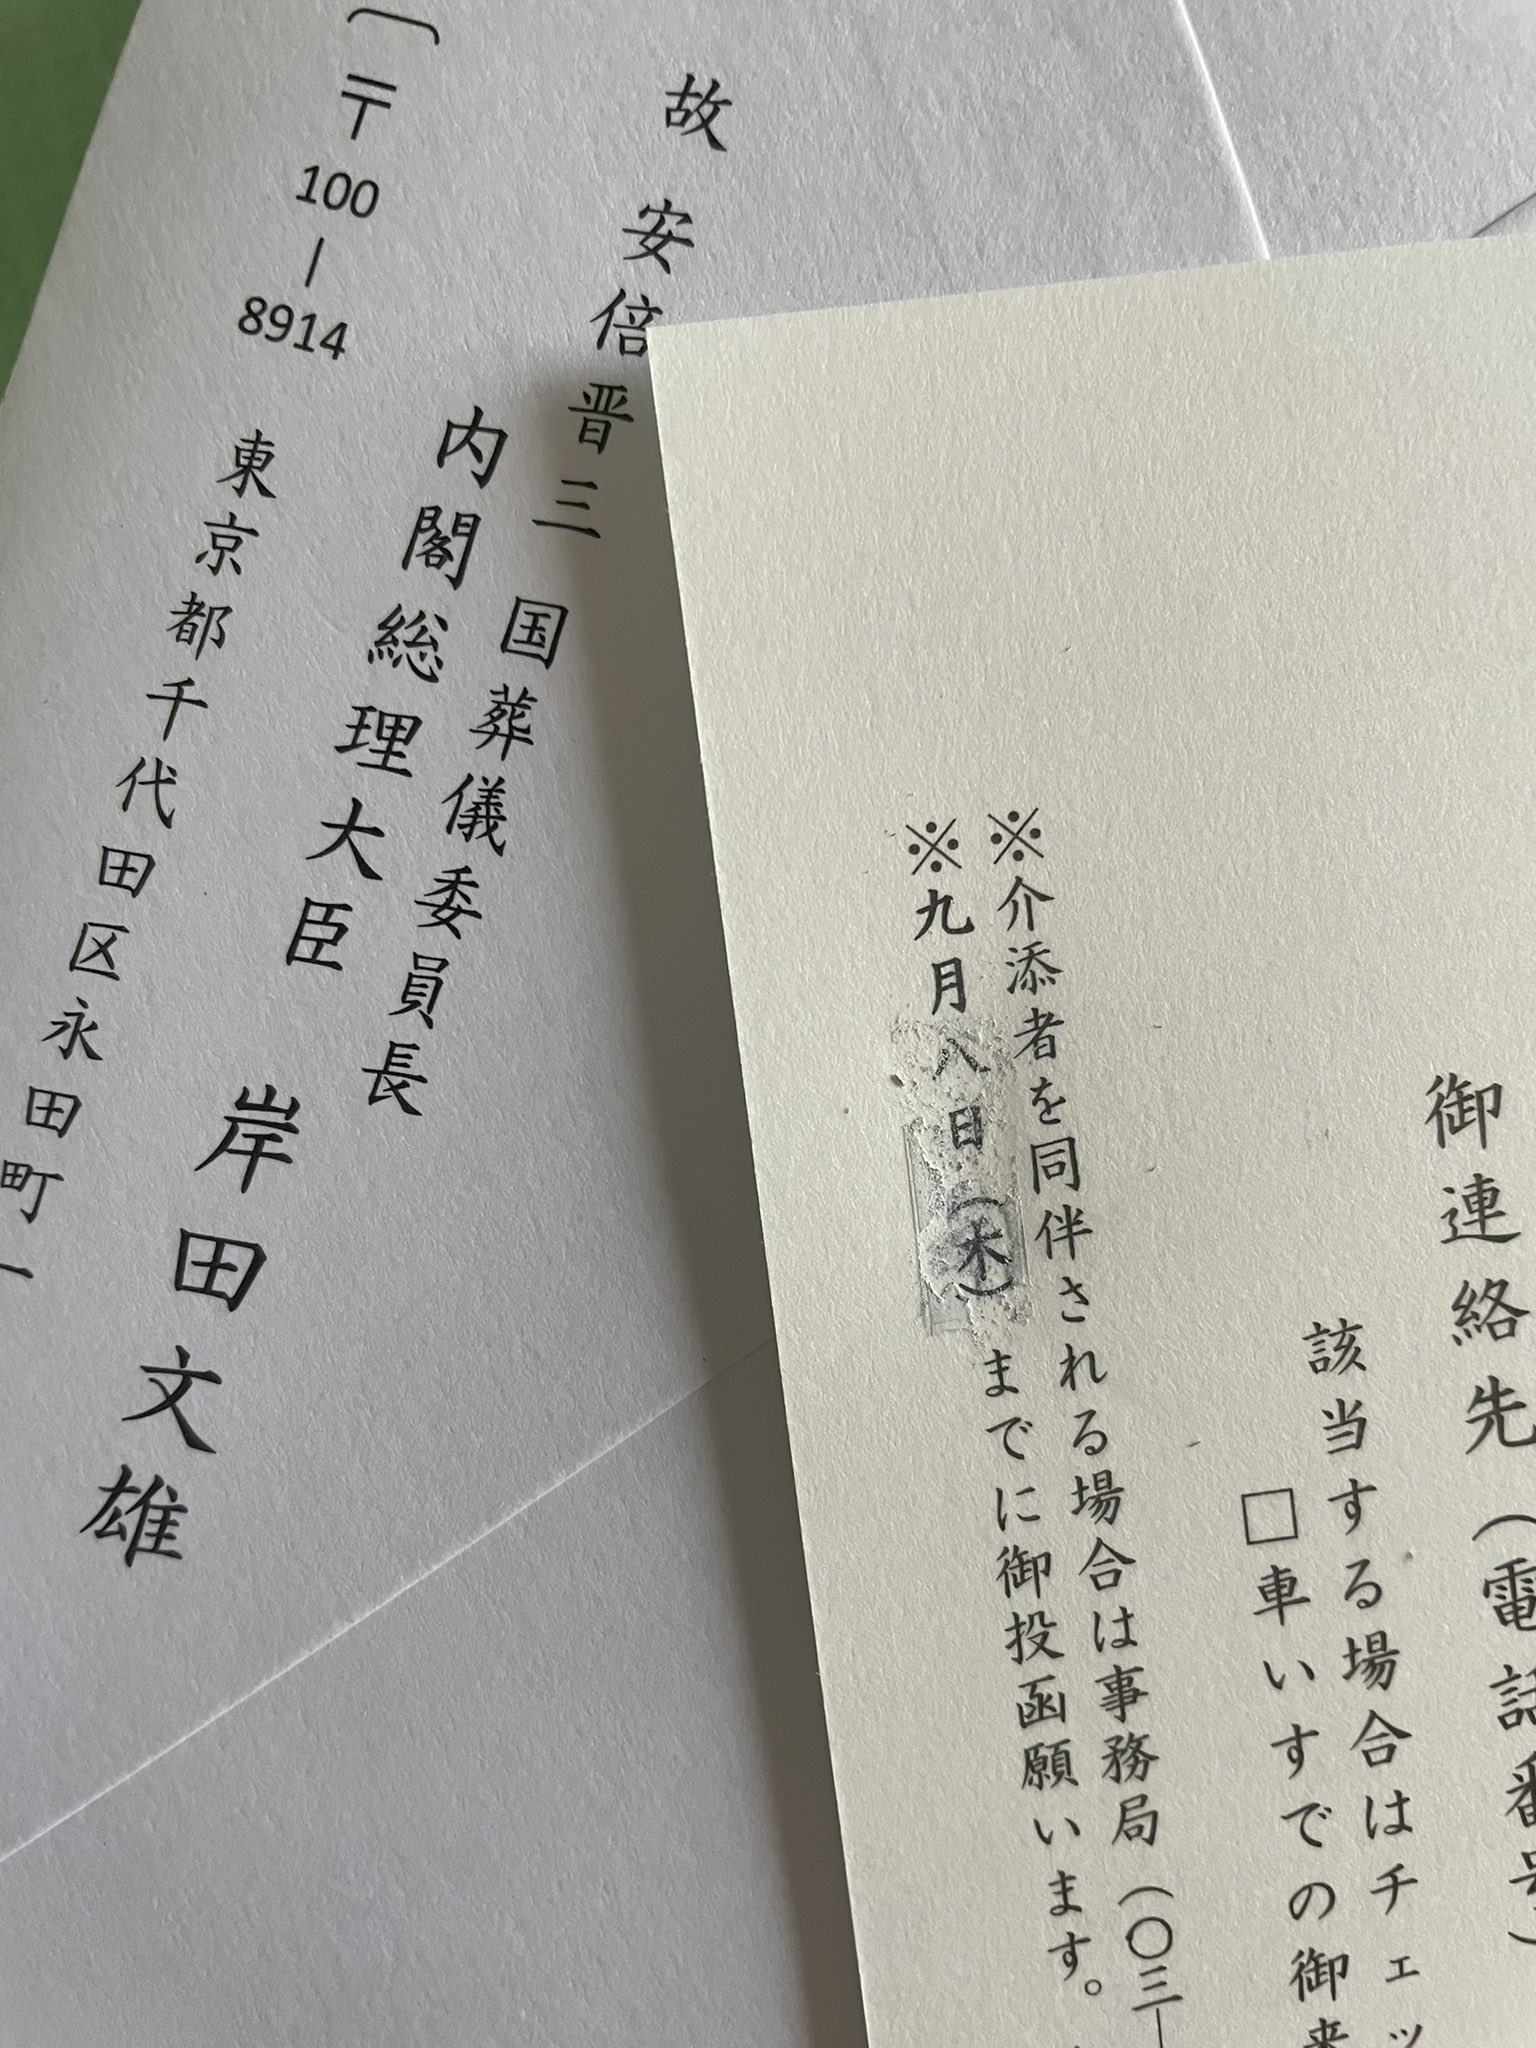 故 安倍晋三 国葬儀委員長
内閣総理大臣 岸田文雄
〔〒100-8914 東京都千代田区永田町一
御連絡先(電話番号)
該当する場合はチェッ
□車いすでの御来
※介添者を同伴される場合は事務局(〇三-
※九月八日(木)までに御投函願います。